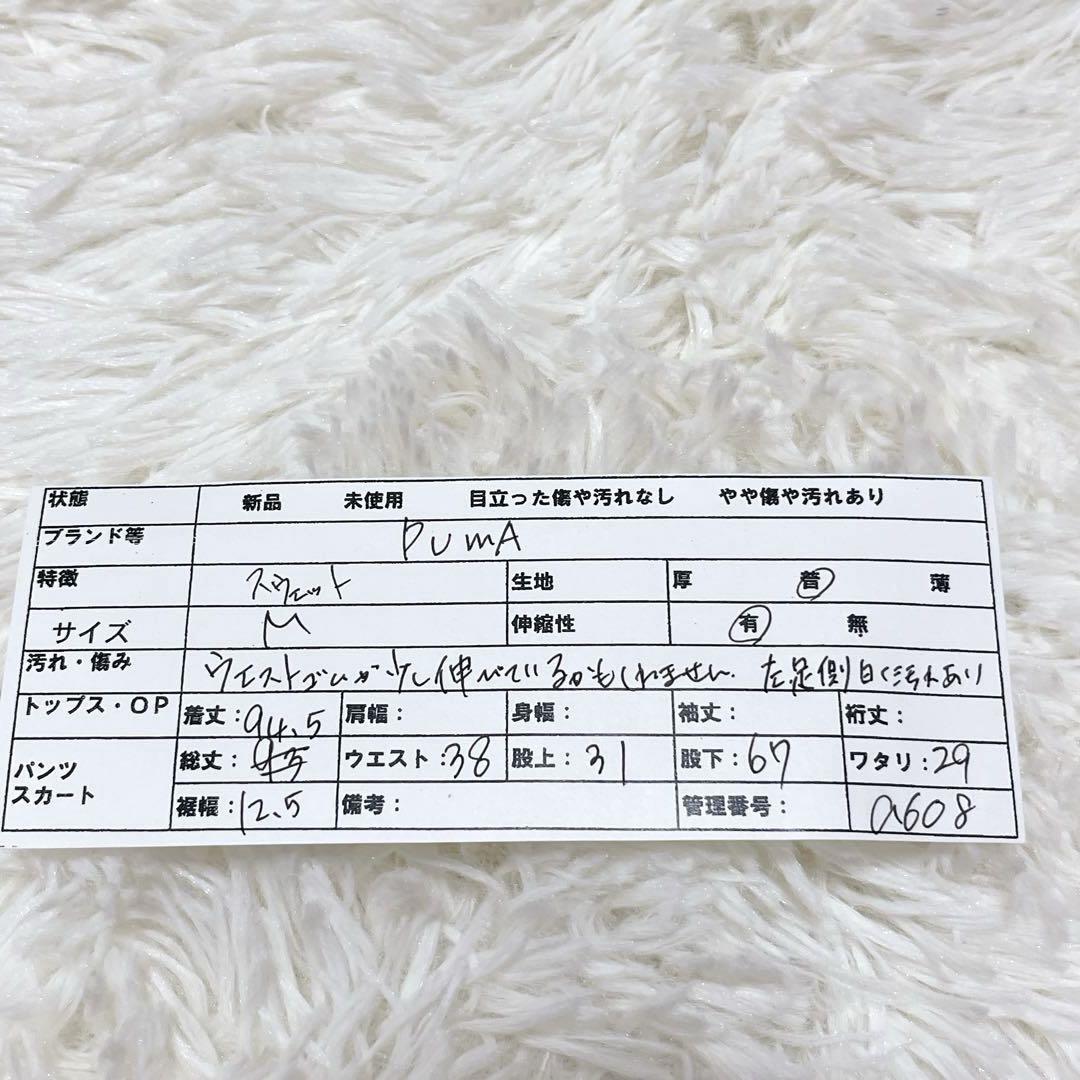 状態 新品 未使用 目立った傷や汚れなし やや傷や汚れあり
ブランド等 PUMA
特徴 スウェット 生地 厚 普 薄
サイズ M 伸縮性 有 無
汚れ・傷み ウエストゴムが少し伸びているかもしれません. 左足側白く汚れあり
トップス・OP 着丈: 94.5 肩幅: 身幅: 袖丈: 裄丈:
パンツ スカート 総丈: ウエスト:38 股上: 31 股下: 67 ワタリ:29
裾幅:12.5 備考: 管理番号: a608